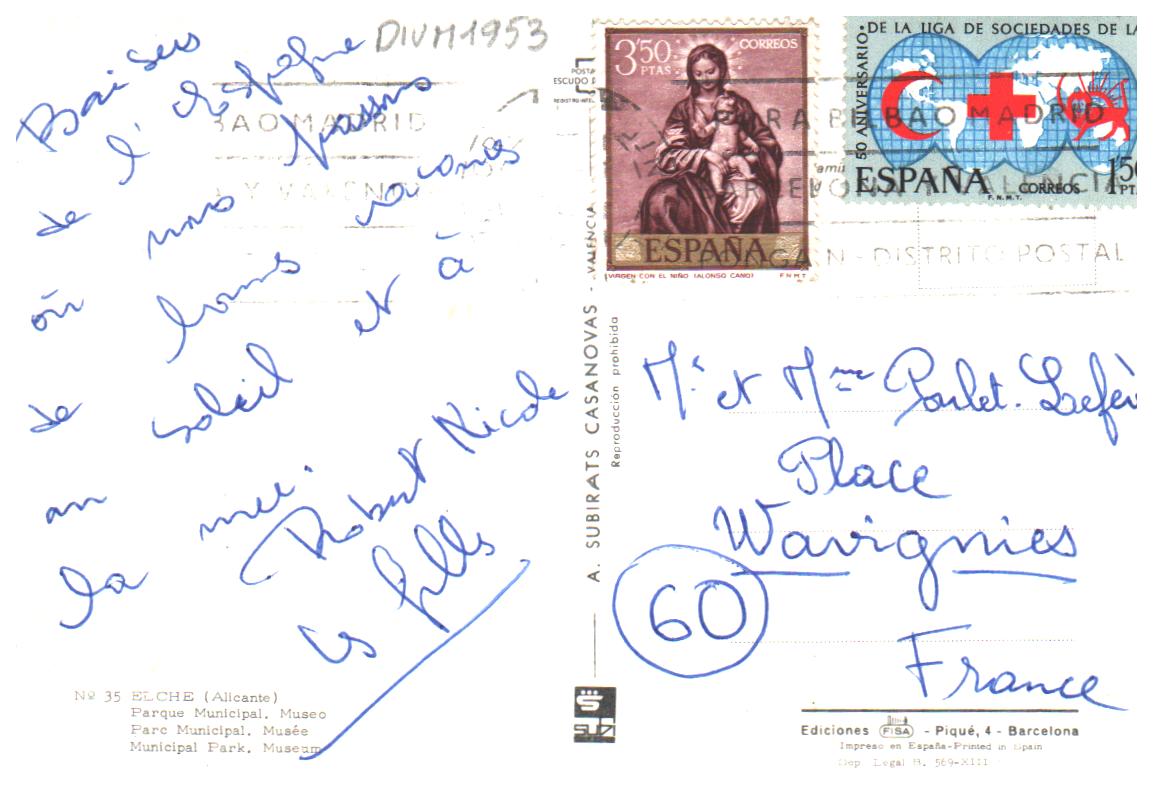 DIVM1953
Baisers
de l'Espagne
où nous passons
de bonnes vacances
au soleil et à
la mer.
Robert Nicole
les filles
Nº 35 ELCHE (Alicante)
Parque Municipal, Museo
Parc Municipal, Musée
Municipal Park, Museum
A. SUBIRATS CASANOVAS - VALENCIA
Reproducción prohibida
POSTA
ESCUDO
REGISTRO INTEL
BAO MADRID
Y VALENC
3'50
PTAS
CORREOS
ESPAÑA
VIRGEN CON EL NIÑO (ALONSO CANO) F N M T
50 ANIVERSARIO · DE LA LIGA DE SOCIEDADES DE LA
ESPAÑA CORREOS 1'50
PT
F. N. M. T.
PARA BILBAO MADRID
BARCELONA Y VALENCIA
PONGA N - DISTRITO POSTAL
Mr et Mme Lefèv
Place
Wavignies
60
France
SUBI
Ediciones FISA - Piqué, 4 - Barcelona
Impreso en España-Printed in Spain
Dep. Legal B. 569-XIII